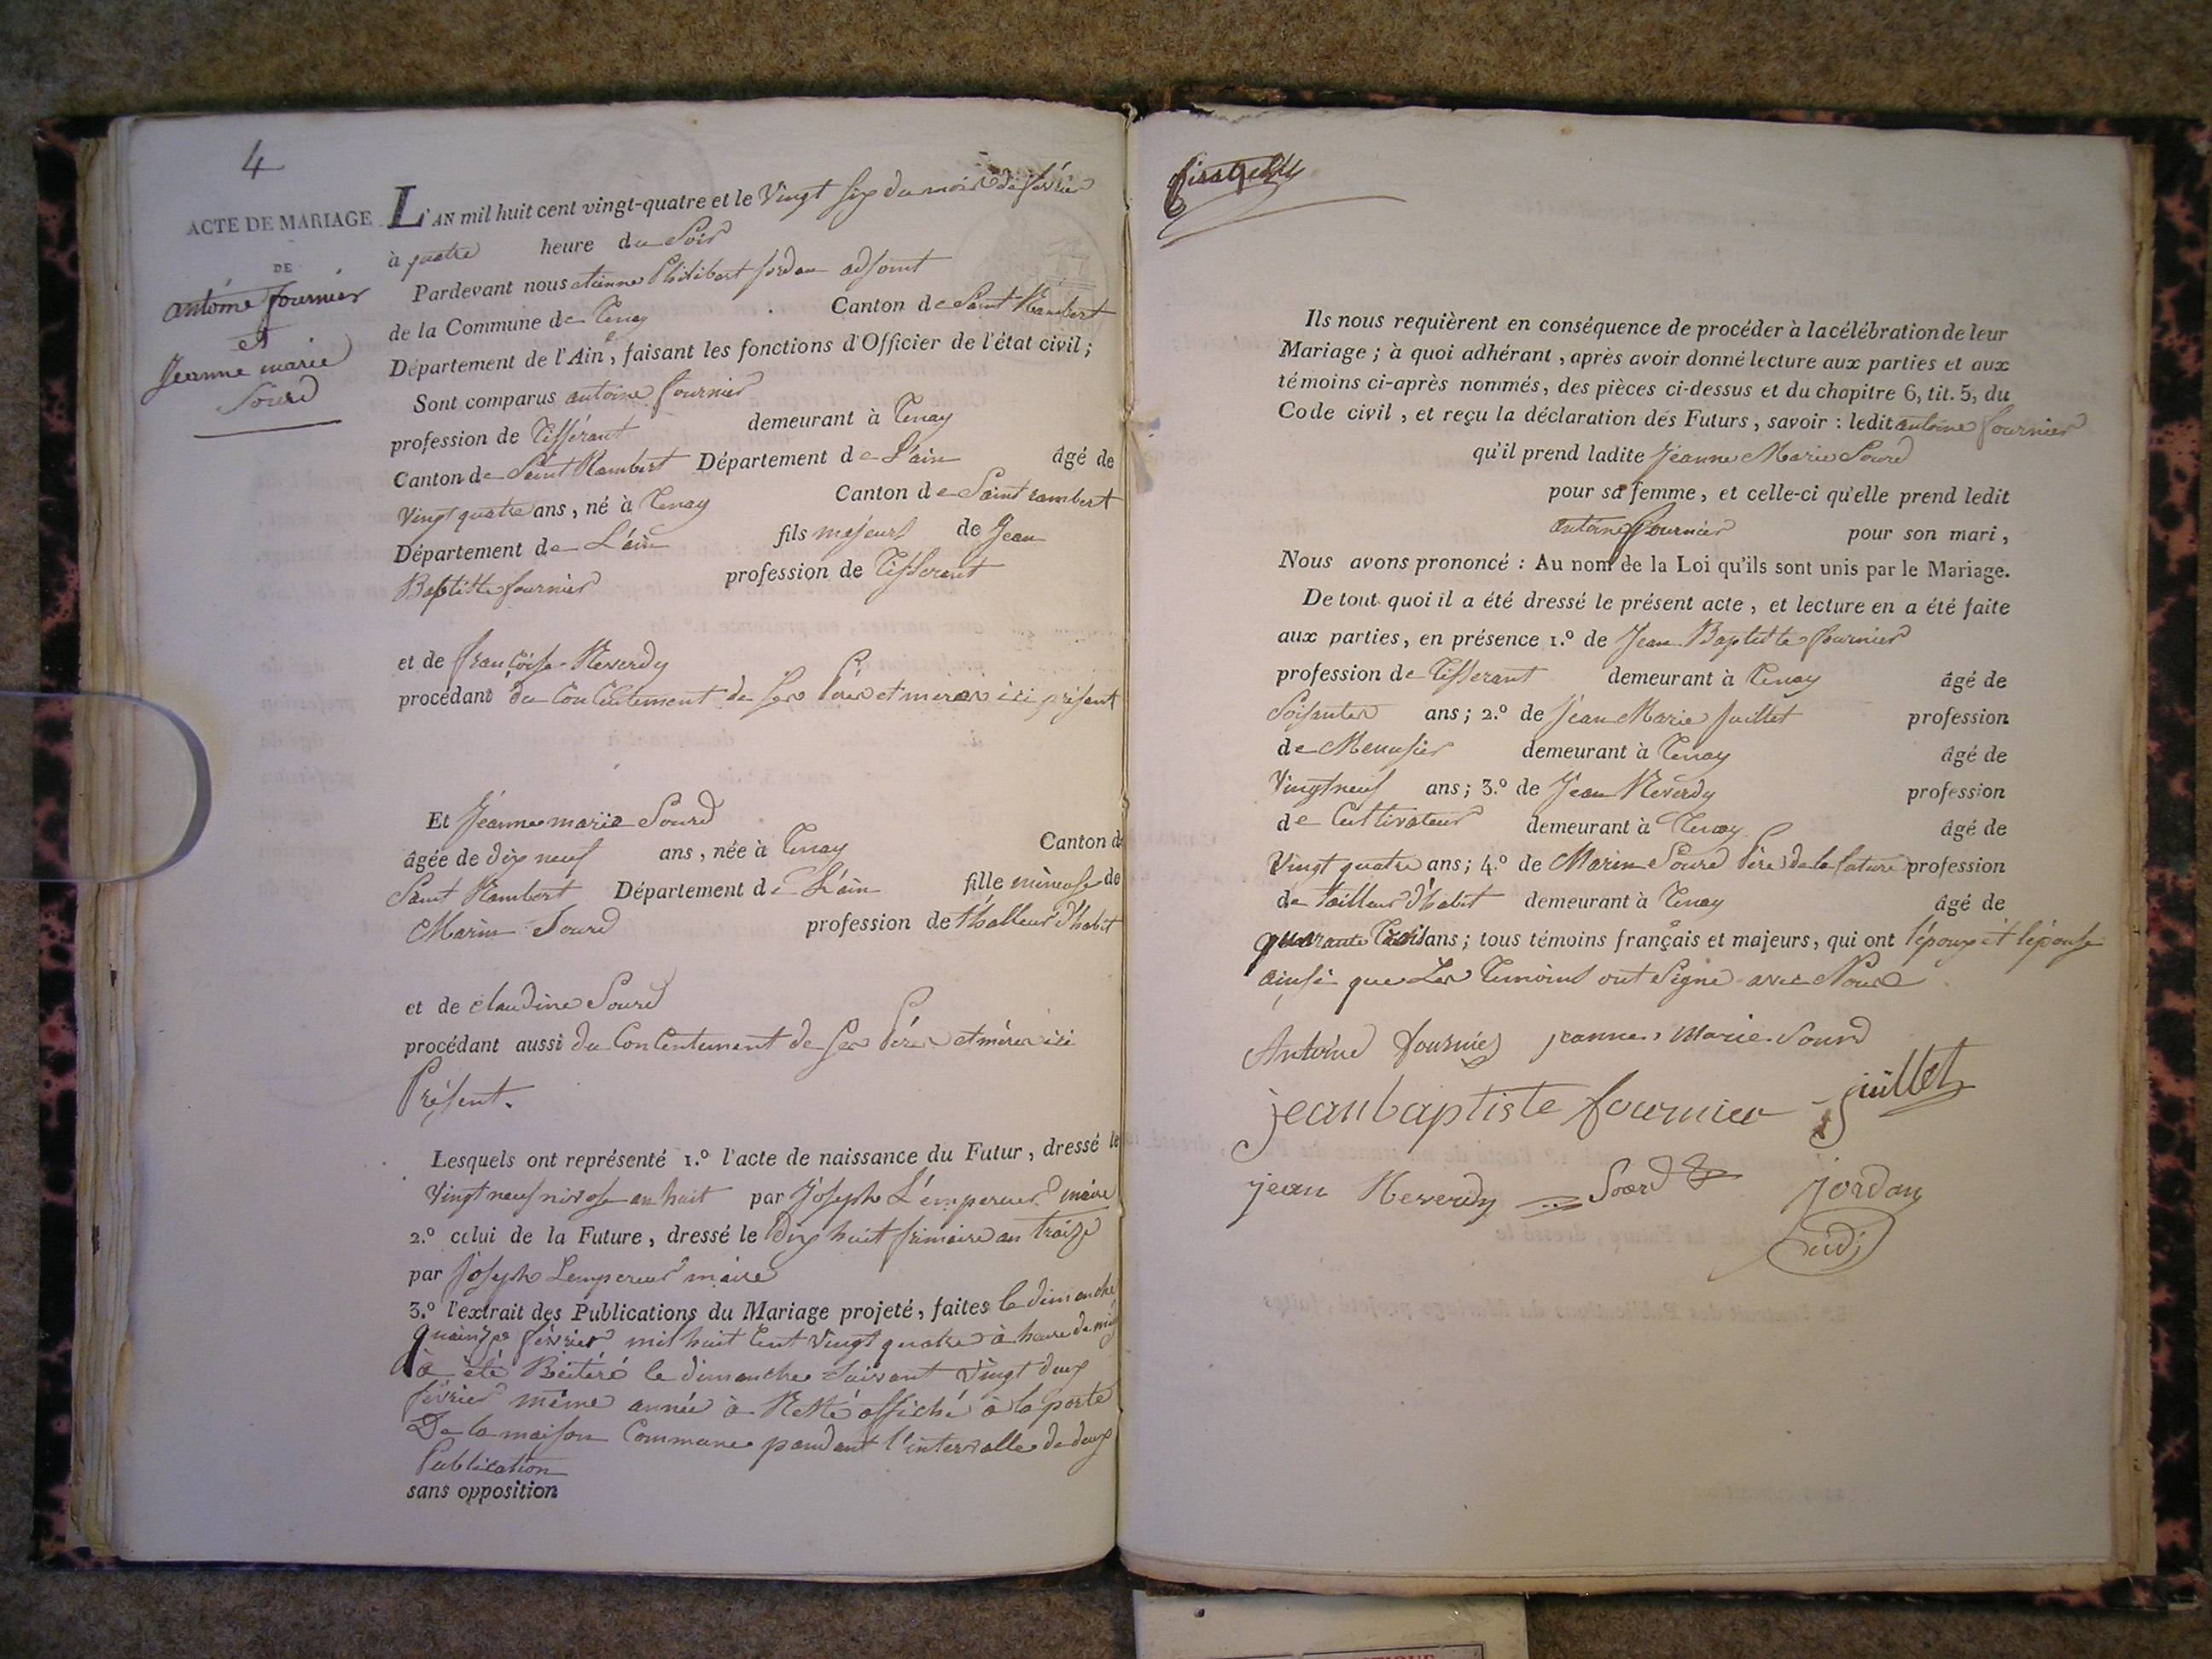 4
ACTE DE MARIAGE
DE
antoine fournier
et
Jeanne marie
Sourd
L'AN mil huit cent vingt-quatre et le Vingt six du mois de février
à quatre heure du Soir
Pardevant nous etienne Philibert Jordan adjoint
de la Commune de Tenay Canton de Saint Rambert
Département de l'Ain, faisant les fonctions d'Officier de l'état civil;
Sont comparus antoine fournier
profession de Tisserant demeurant à Tenay
Canton de Saint Rambert Département de L'ain âgé de
Vingt quatre ans, né à Tenay Canton de Saint rambert
Département de L'ain fils majeur de Jean
Baptiste fournier profession de Tisserant
et de françoise Reverdy
procédant du Consentement de ses Père et mere ici présent
Et Jeanne marie Sourd
âgée de dix neuf ans, née à Tenay Canton de
Saint Rambert Département de L'ain fille mineuse de
Marin Sourd profession de thalleur d'habit
et de claudine Sourd
procédant aussi du Consentement de ses Père et mère ici
Présent.
Lesquels ont représenté 1.º l'acte de naissance du Futur, dressé le
Vingt neuf nivose an huit par Joseph L'empereur maire
2.º celui de la Future, dressé le Dix huit frimaire an traize
par Joseph Lempereur maire
3.º l'extrait des Publications du Mariage projeté, faites le dimanche
quainze février mil huit Cent Vingt quatre à heure de midi
à été Réitéré le dimanche Suivant Vingt deux
février même année à Resté affiché à la porte
De la maison Commune pandant l'intervalle de deux
Publication
sans opposition
Ils nous requièrent en conséquence de procéder à la célébration de leur
Mariage; à quoi adhérant, après avoir donné lecture aux parties et aux
témoins ci-après nommés, des pièces ci-dessus et du chapitre 6, tit. 5, du
Code civil, et reçu la déclaration des Futurs, savoir : ledit antoine fournier
qu'il prend ladite Jeanne Marie Sourd
pour sa femme, et celle-ci qu'elle prend ledit
antoine fournier pour son mari,
Nous avons prononcé : Au nom de la Loi qu'ils sont unis par le Mariage.
De tout quoi il a été dressé le présent acte, et lecture en a été faite
aux parties, en présence 1.º de Jean Baptiste fournier
profession de Tisserant demeurant à Tenay âgé de
Soisante ans; 2.º de Jean Marie Juillet profession
de Menusier demeurant à Tenay âgé de
Vingt neuf ans; 3.º de Jean Reverdy profession
de Cultivateur demeurant à Tenay âgé de
Vingt quatre ans; 4.º de Marin Sourd Père de la future profession
de tailleur d'habit demeurant à Tenay âgé de
quarante Trois ans; tous témoins français et majeurs, qui ont l'époux et l'épouse
ainsi que Les Temoins ont Signé avec Nous
Antoine fournier jeanne marie Sourd
jean baptiste fournier juillet
jean Reverdy Sourd jordan
adj